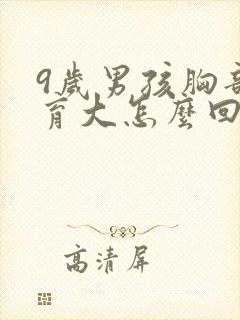 9歲男孩胸部
育大怎麼回
高清屏